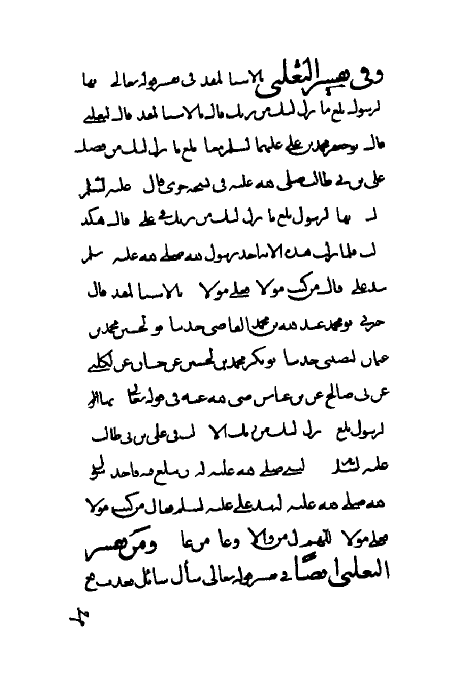 وفى تفسير الثعلبي بالاسناد المقدم فى تفسير قوله تعالى يا ايها
الرسول بلغ ما انزل اليك من ربك قال بالاسناد المقدم قال الثعلبي
قال ابو جعفر محمد بن على عليهما السلم معناها بلغ ما انزل اليك من فضل
على بن ابى طالب صلى الله عليه فى نسخة اخرى قال عليه السلم
يا ايها الرسول بلغ ما انزل اليك من ربك فى على قال هكذا
فلما نزلت هذه الاية اخذ رسول الله صلى الله عليه وسلم
بيد على قال من كنت مولاه فعلي مولاه بالاسناد المقدم قال
اخبرنى ابو محمد عبد الله بن محمد القاضى حدثنا ابو الحسين محمد بن
عثمان النصيبى حدثنا ابو بكر محمد بن الحسين عن حسان عن الكلبي
عن ابى صالح عن ابن عباس رضى الله عنه فى قوله تعالى يا ايها
الرسول بلغ ما انزل اليك من ربك الاية فى على بن ابى طالب
عليه السلم النبي صلى الله عليه ان يبلغ فيه فاخذ رسول
الله صلى الله عليه بيد علي عليه السلم فقال من كنت مولاه
فعلي مولاه اللهم وال من والاه وعاد من عاداه ومن تفسير
الثعلبي ايضا فى تفسير قوله تعالى سأل سائل بعذاب واقع